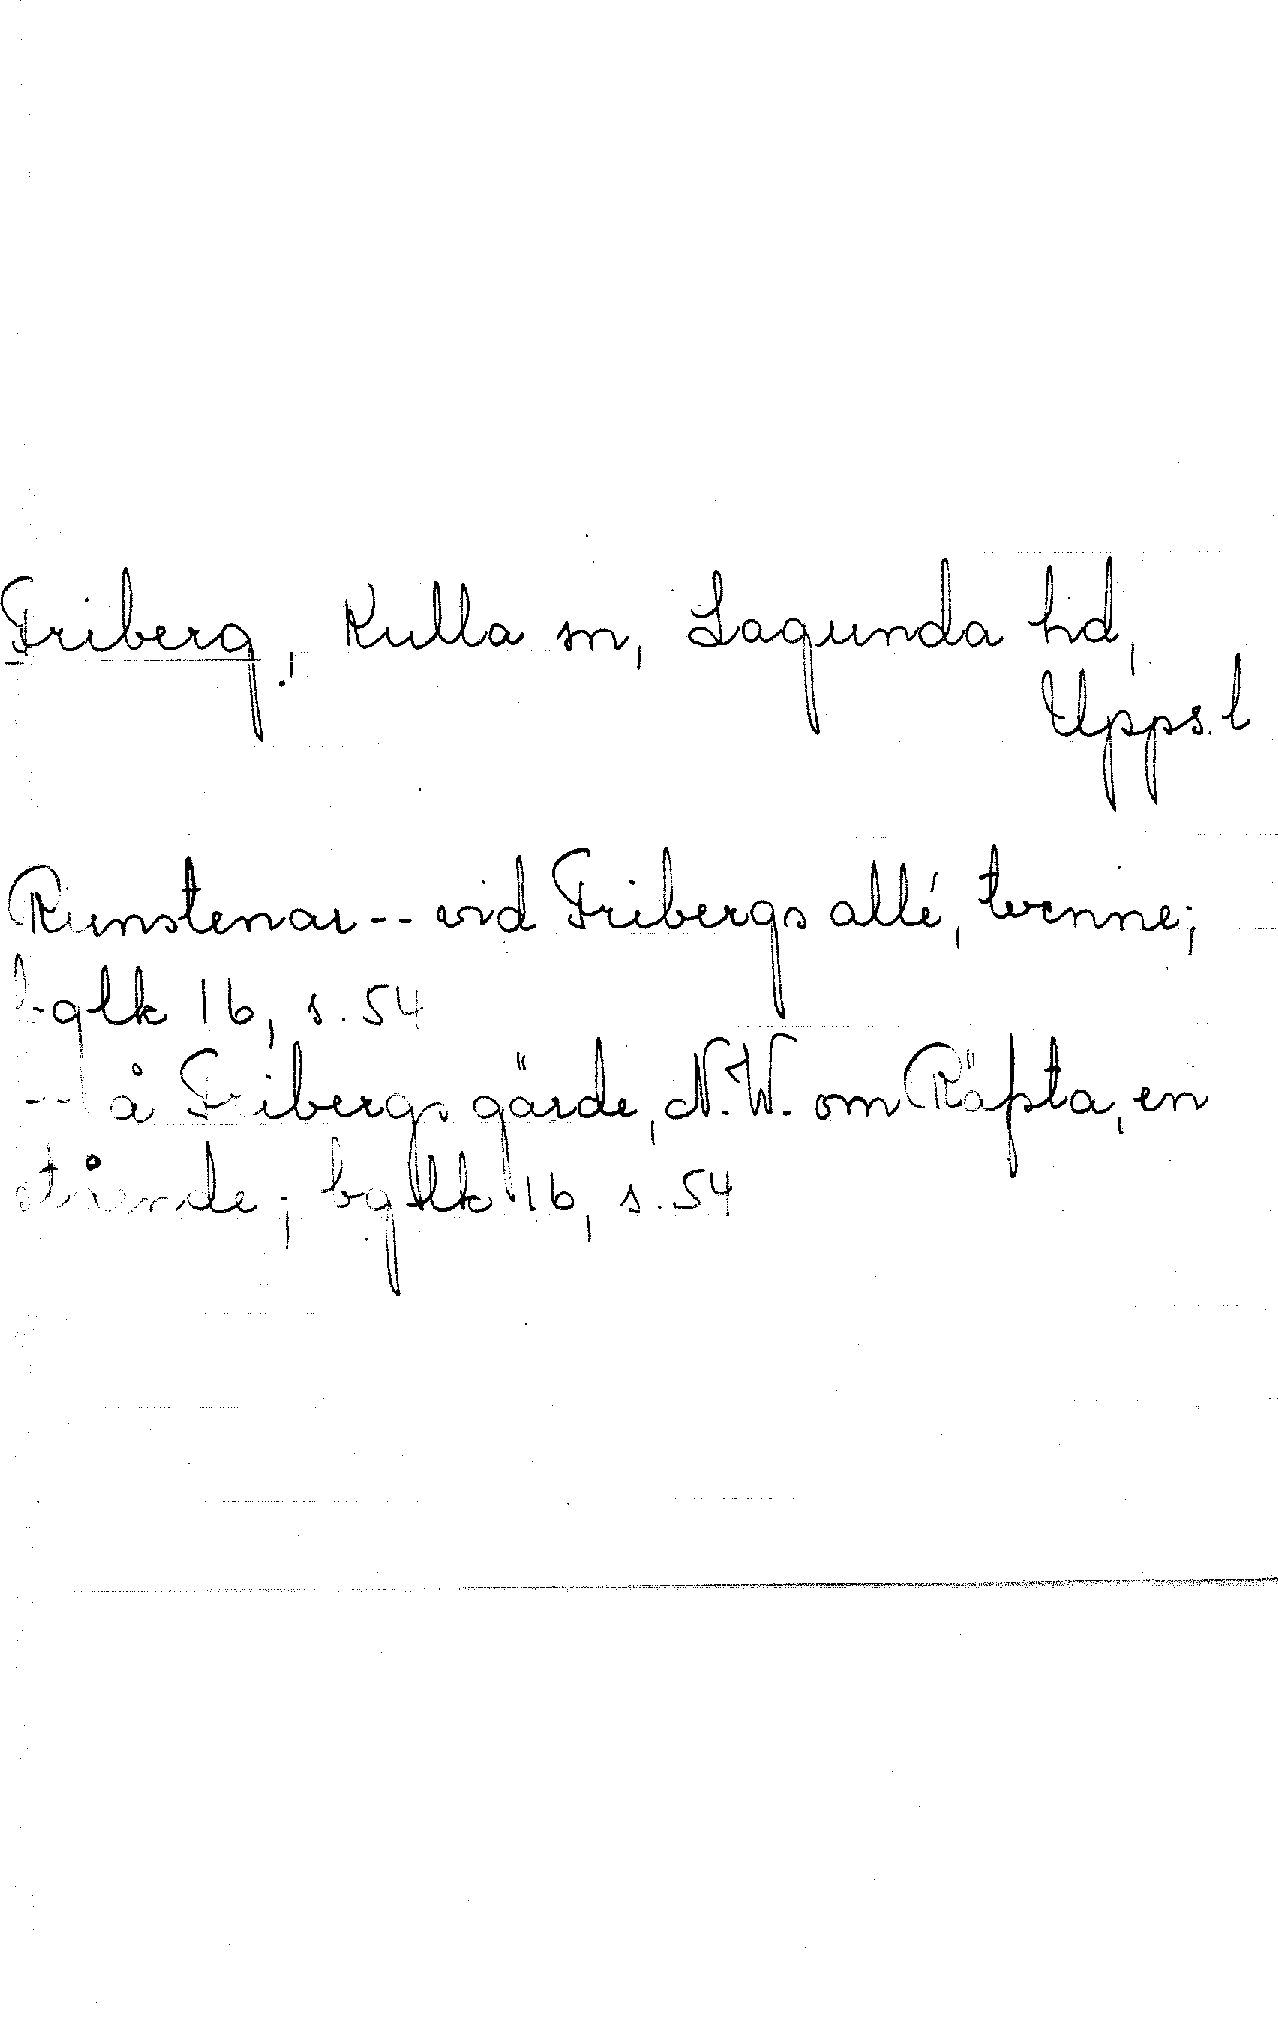 Friberg, Kulla sn, Lagunda hd,
Upps. l
Runstenar -- vid Fribergs allé, tvenne;
bglk 16, s. 54
-- å Fribergs gärde, N.W. om Räfsta, en
stående; bglk 16, s. 54